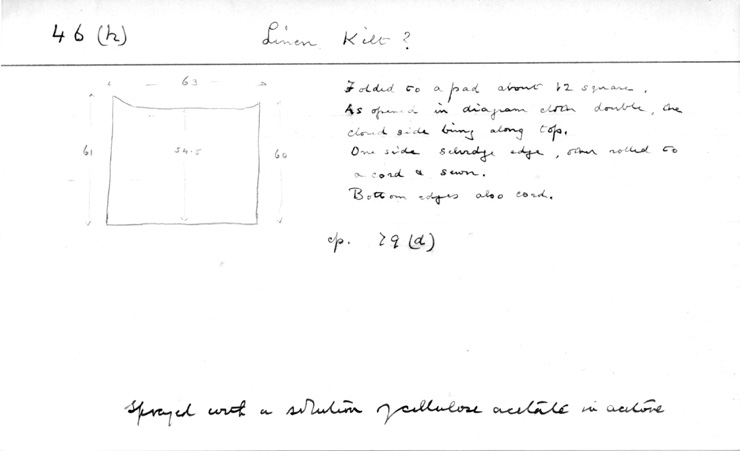 46 (h) Linen Kilt?
63
61
54.5
60
Folded to a pad about 12 square.
As opened in diagram cloth double, the
closed side being along top.
One side selvedge edge, other rolled to
a cord & sewn.
Bottom edges also cord.
cp. 79 (d)
Sprayed with a solution of cellulose acetate in acetone